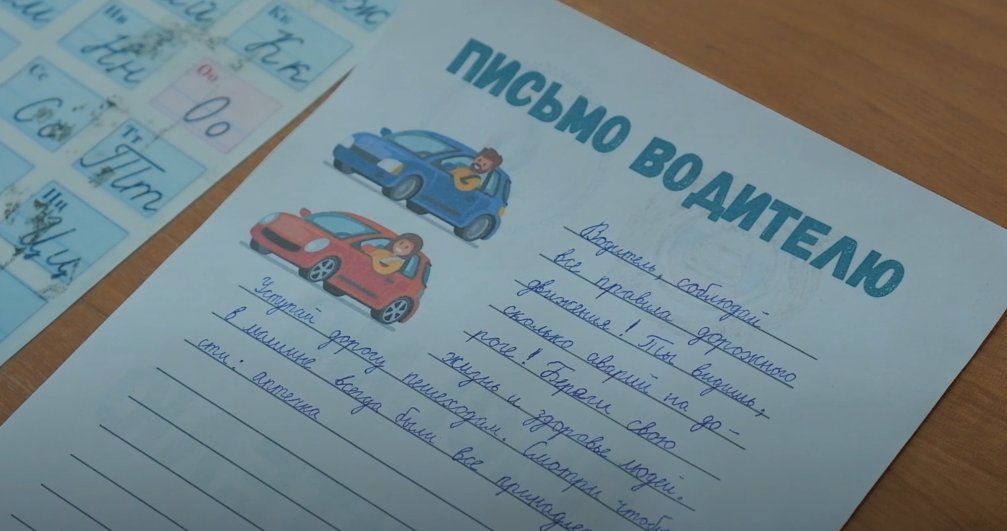 Нн
Кк
Сс
Оо
Тт
Цц
ПИСЬМО ВОДИТЕЛЮ
Водитель, соблюдай
все правила дорожного
движения! Ты видишь,
сколько аварий на до-
роге! Береги свою
жизнь и здоровье людей.
Уступай дорогу пешеходам. Смотри чтобы
в машине всегда были все принадле
сти: аптечка